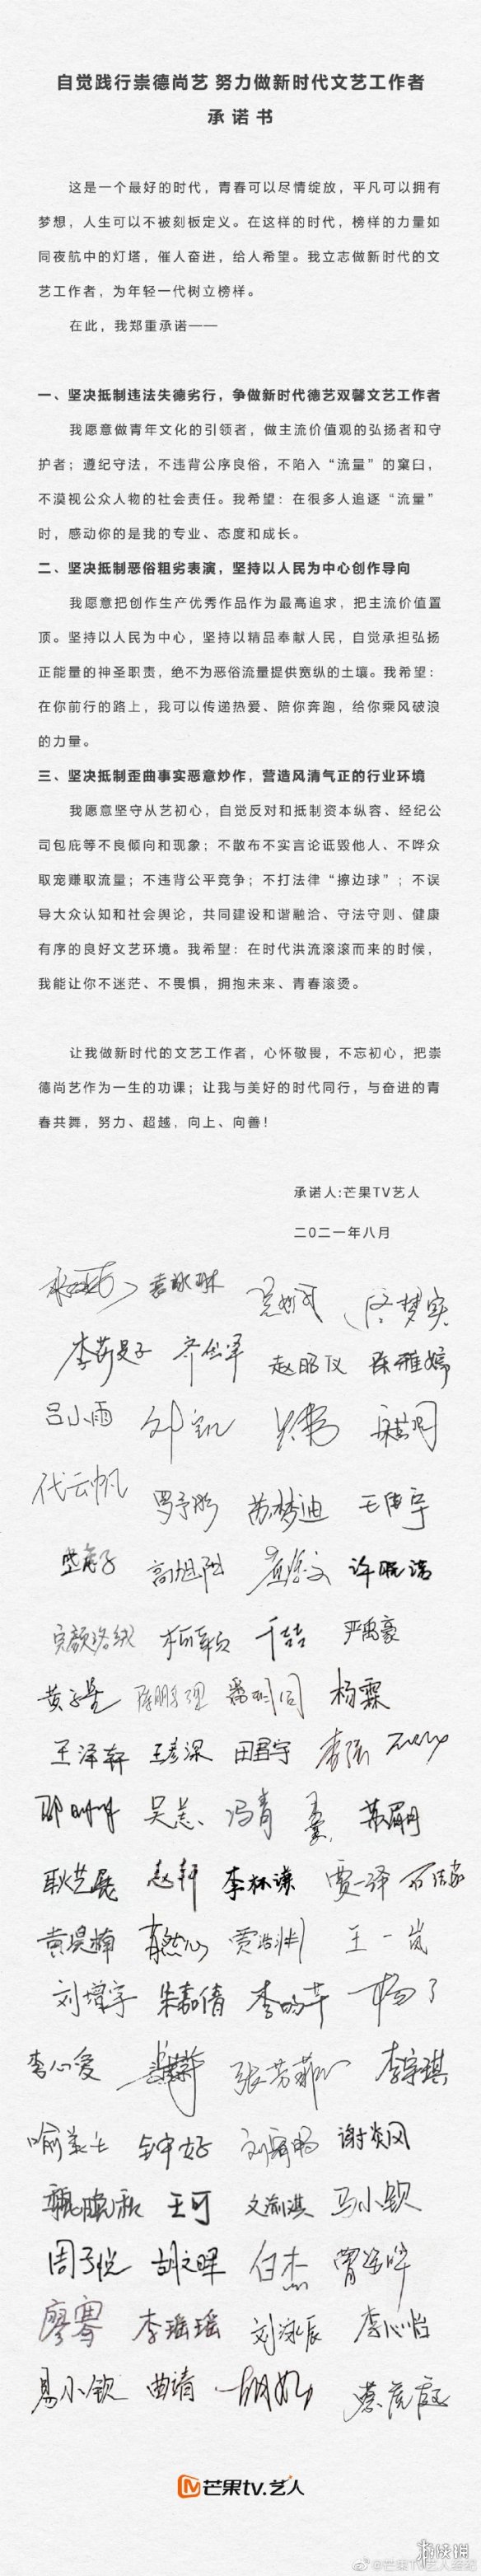 自觉践行崇德尚艺 努力做新时代文艺工作者
承诺书
这是一个最好的时代，青春可以尽情绽放，平凡可以拥有
梦想，人生可以不被刻板定义。在这样的时代，榜样的力量如
同夜航中的灯塔，催人奋进，给人希望。我立志做新时代的文
艺工作者，为年轻一代树立榜样。
在此，我郑重承诺——
一、坚决抵制违法失德劣行，争做新时代德艺双馨文艺工作者
我愿意做青年文化的引领者，做主流价值观的弘扬者和守
护者；遵纪守法，不违背公序良俗，不陷入“流量”的窠臼，
不漠视公众人物的社会责任。我希望：在很多人追逐“流量”
时，感动你的是我的专业、态度和成长。
二、坚决抵制恶俗粗劣表演，坚持以人民为中心创作导向
我愿意把创作生产优秀作品作为最高追求，把主流价值置
顶。坚持以人民为中心，坚持以精品奉献人民，自觉承担弘扬
正能量的神圣职责，绝不为恶俗流量提供宽纵的土壤。我希望：
在你前行的路上，我可以传递热爱、陪你奔跑，给你乘风破浪
的力量。
三、坚决抵制歪曲事实恶意炒作，营造风清气正的行业环境
我愿意坚守从艺初心，自觉反对和抵制资本纵容、经纪公
司包庇等不良倾向和现象；不散布不实言论诋毁他人、不哗众
取宠赚取流量；不违背公平竞争；不打法律“擦边球”；不误
导大众认知和社会舆论，共同建设和谐融洽、守法守则、健康
有序的良好文艺环境。我希望：在时代洪流滚滚而来的时候，
我能让你不迷茫、不畏惧，拥抱未来、青春滚烫。
让我做新时代的文艺工作者，心怀敬畏，不忘初心，把崇
德尚艺作为一生的功课；让我与美好的时代同行，与奋进的青
春共舞，努力、超越，向上、向善！
承诺人:芒果TV艺人
二〇二一年八月
袁咏琳
赵昭仪 陈雅婷
吕小雨
代云帆 苏梦迪
高旭阳 许晓诺
完颜洛绒 严禹豪
杨霖
王泽轩 王彦深 田君宇
吴恙 冯青
耿艺展 赵轩 李林谦 贾一泽
王一岚
刘增宇 朱嘉倩 杨了
李心爱 李宇琪
钟好 谢炎风
王可 马小钦
周子悦 胡文晖 白杰
廖骞 李瑶瑶 刘泳辰 李心怡
易小钦 曲靖
芒果tv.艺人
游侠网
@芒果TV艺人经纪